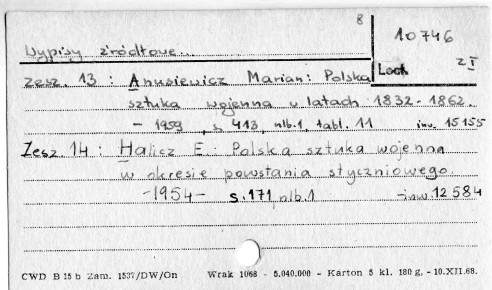 8
10746
Wypisy źródłowe...
Zesz. 13 : Anusiewicz Marian: Polska
Lock z I
sztuka wojenna w latach 1832-1862.
- 1959 , s. 413, nlb.1, tabl. 11 inw. 15155
Zesz. 14 : Halicz E: Polska sztuka wojenna
w okresie powstania styczniowego.
-1954- s.171, nlb.1 -inw. 12584
CWD B 15 b Zam. 1537/DW/On Wrak 1068 - 5.040.000 - Karton 5 kl. 180 g, - 10.XII.68.